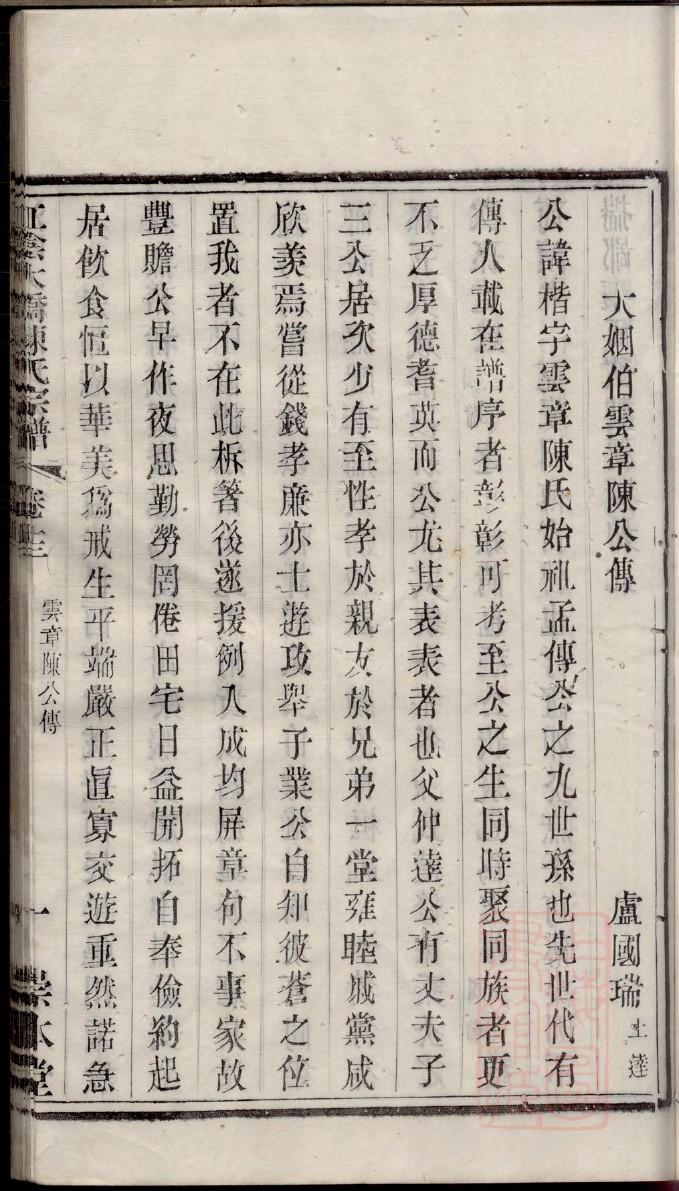 大姻伯雲章陳公傳　盧國瑞士達
公諱楷字雲章陳氏始祖孟傳公之九世孫也先世代有
傳人載在譜序者彰彰可考至公之生同時聚同族者更
不乏厚德耆英而公尤其表表者也父仲達公有丈夫子
三公居次少有至性孝於親友於兄弟一堂雍睦戚黨咸
欣羨焉嘗從錢孝廉亦士遊攻舉子業公自知彼蒼之位
置我者不在此柝箸後遂援例入成均屏章句不事家故
豐贍公早作夜思勤勞罔倦田宅日益開拓自奉儉約起
居飲食恒以華美為戒生平端嚴正直寡交遊重然諾急
江陰大橋陳氏宗譜　卷十三　雲章陳公傳　一　崇本堂